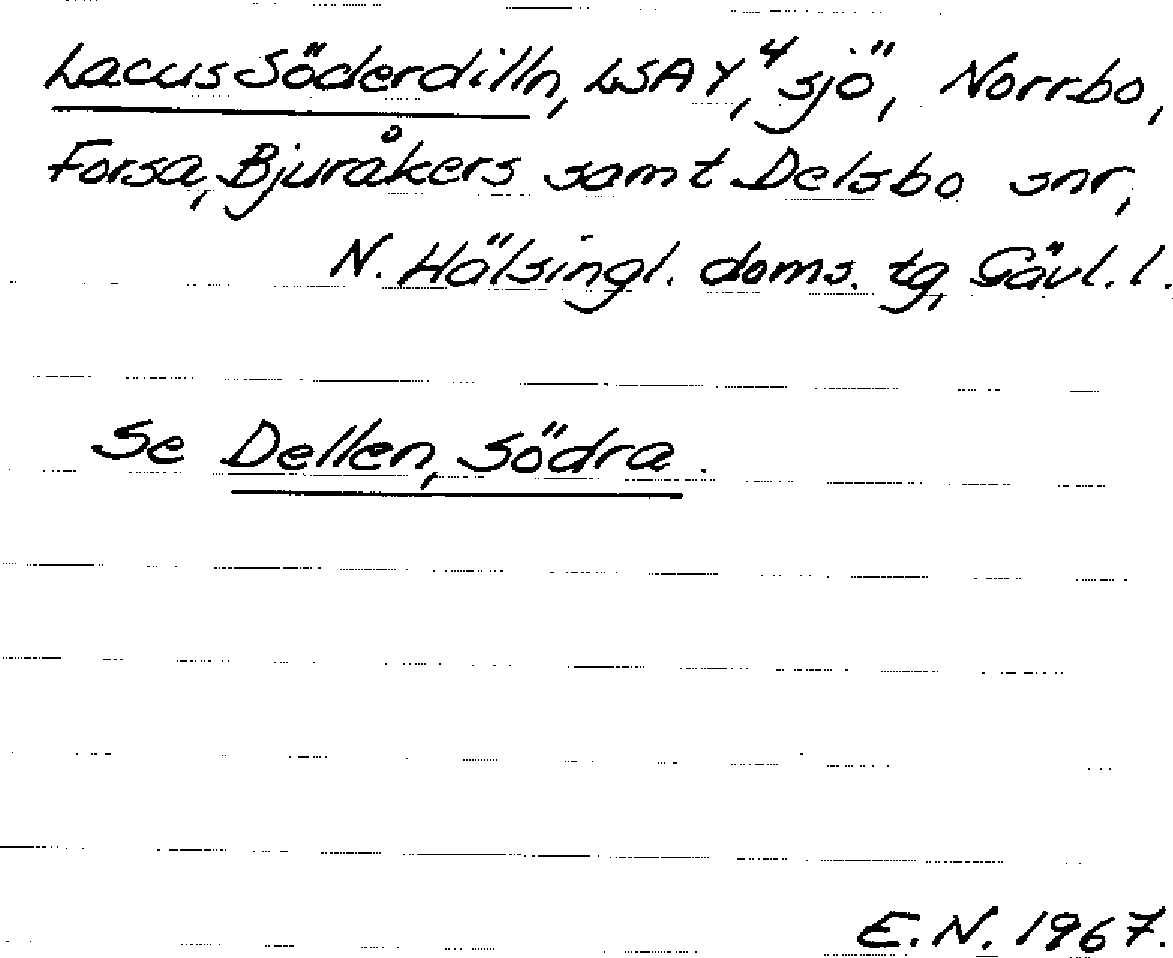 Lacus Söderdilln, LSA Y⁴, sjö, Norrbo,
Forsa, Bjuråkers samt Delsbo snr,
N. Hälsingl. doms. tg, Gävl. l.
Se Dellen, Södra.
E.N. 1967.